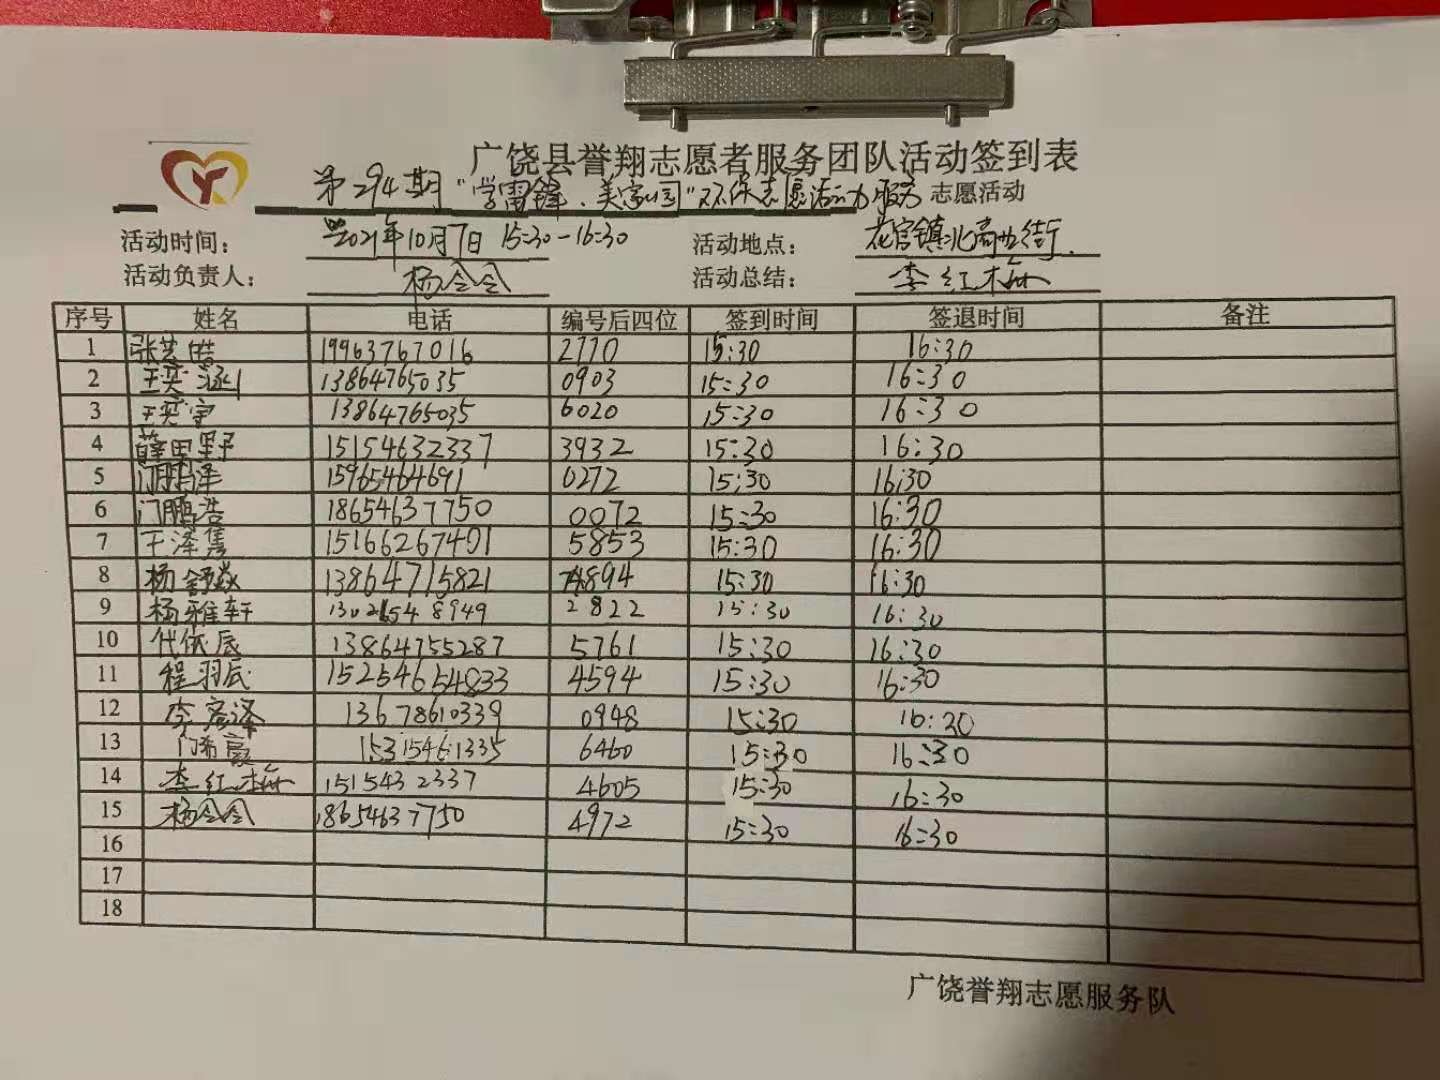 广饶县誉翔志愿者服务团队活动签到表
第294期"学雷锋、美家园"环保志愿活动服务 志愿活动
活动时间： 2021年10月7日 15:30-16:30 活动地点： 花官镇北高西街.
活动负责人： 杨令令 活动总结： 李红梅
序号 姓名 电话 编号后四位 签到时间 签退时间 备注
1 张艺皓 19963767016 2770 15:30 16:30
2 王奕涵 13864765035 0903 15:30 16:30
3 王奕宇 13864765035 6020 15:30 16:30
4 薛田野 15154632337 3932 15:30 16:30
5 门鹏泽 15965464691 0272 15:30 16:30
6 门鹏浩 18654637750 0072 15:30 16:30
7 王泽隽 15166267401 5853 15:30 16:30
8 杨舒 13864715821 4894 15:30 16:30
9 杨雅轩 13026548949 2822 15:30 16:30
10 代依辰 13864755287 5761 15:30 16:30
11 程羽辰 15254654833 4594 15:30 16:30
12 李泽 13678610339 0948 15:30 16:20
13 门希 15315461335 6460 15:30 16:30
14 李红梅 1515432337 4605 15:30 16:30
15 杨令令 18654637750 4972 15:30 16:30
16
17
18
广饶誉翔志愿服务队